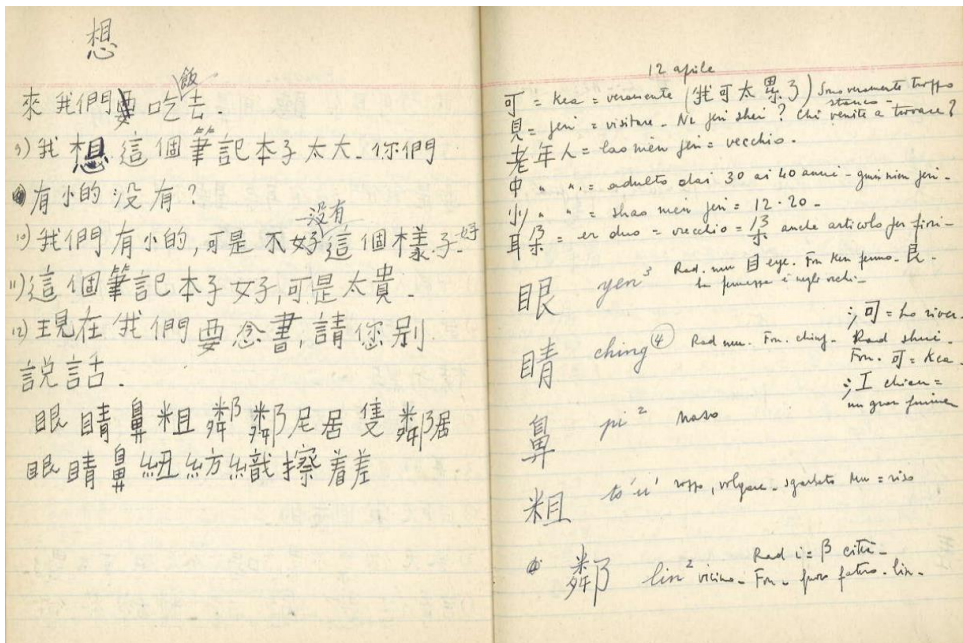 想
飯
來我們要吃去.
9) 我想這個筆記本子太大. 你們
有小的沒有?
沒有
10) 我們有小的, 可是不好這個樣子好
11) 這個筆記本子好, 可是太貴.
12) 現在我們要念書, 請您别
説話.
眼睛鼻粗鄰鄰尼居隻鄰居
眼睛鼻紐紡織擦着差
12 aprile
可 = kea = veramente (我可太累了) Sono veramente troppo
stanco -
見 = jen = visitare - Ni jen shei? Chi venite a trovare?
老年人 = lao nien jen = vecchio.
中 " " = adulto dai 30 ai 40 anni -
小 " " = shao nien jen = 12-20 -
耳朵 = er duo = orecchio = 朵 anche articolo per fiori -
眼 yen³ Rad. mu 目 eye. Fon ken fermo - 艮 -
睛 ching ④ Rad mu. Fon. ching -
河 = ho river.
Rad shui -
Fon. 可 = kea.
江 chian =
un gran fiume
鼻 pi² naso
粗 rozzo, volgare - sgarbato = riso
鄰 lin² vicino - Rad i = β città -
Fon - lin -